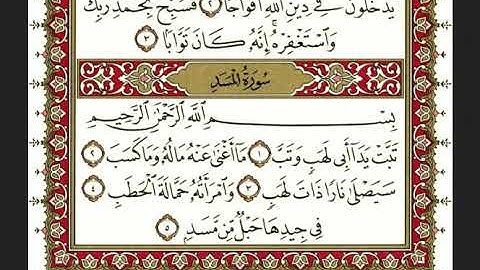 يَدْخُلُونَ فِي دِينِ اللَّهِ أَفْوَاجًا ٢ فَسَبِّحْ بِحَمْدِ رَبِّكَ
وَاسْتَغْفِرْهُ إِنَّهُ كَانَ تَوَّابًا ٣
سُورَةُ المَسَد
بِسْمِ اللَّهِ الرَّحْمَٰنِ الرَّحِيمِ
تَبَّتْ يَدَا أَبِي لَهَبٍ وَتَبَّ ١ مَا أَغْنَىٰ عَنْهُ مَالُهُ وَمَا كَسَبَ ٢
سَيَصْلَىٰ نَارًا ذَاتَ لَهَبٍ ٣ وَامْرَأَتُهُ حَمَّالَةَ الْحَطَبِ ٤
فِي جِيدِهَا حَبْلٌ مِّن مَّسَدٍ ٥